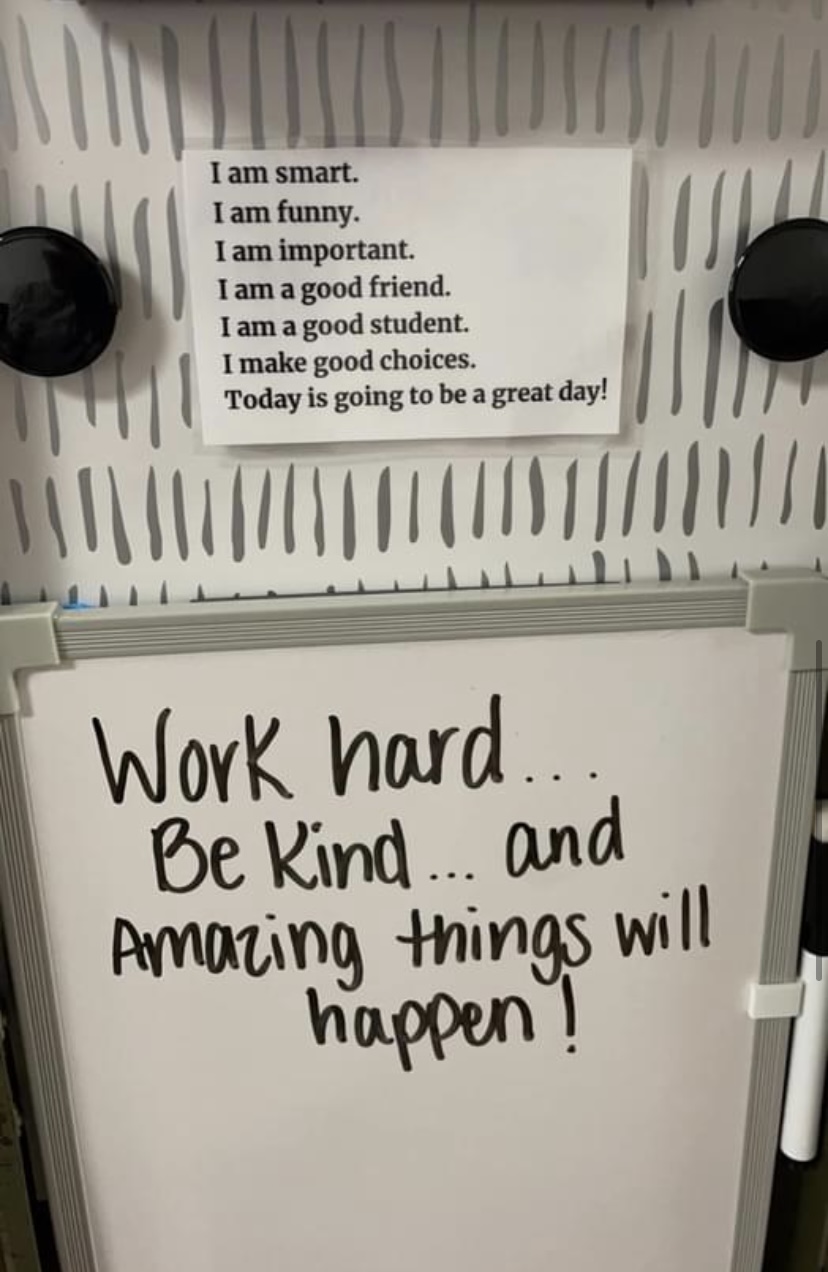 I am smart.
I am funny.
I am important.
I am a good friend.
I am a good student.
I make good choices.
Today is going to be a great day!
Work hard...
Be Kind... and
Amazing things will
happen!